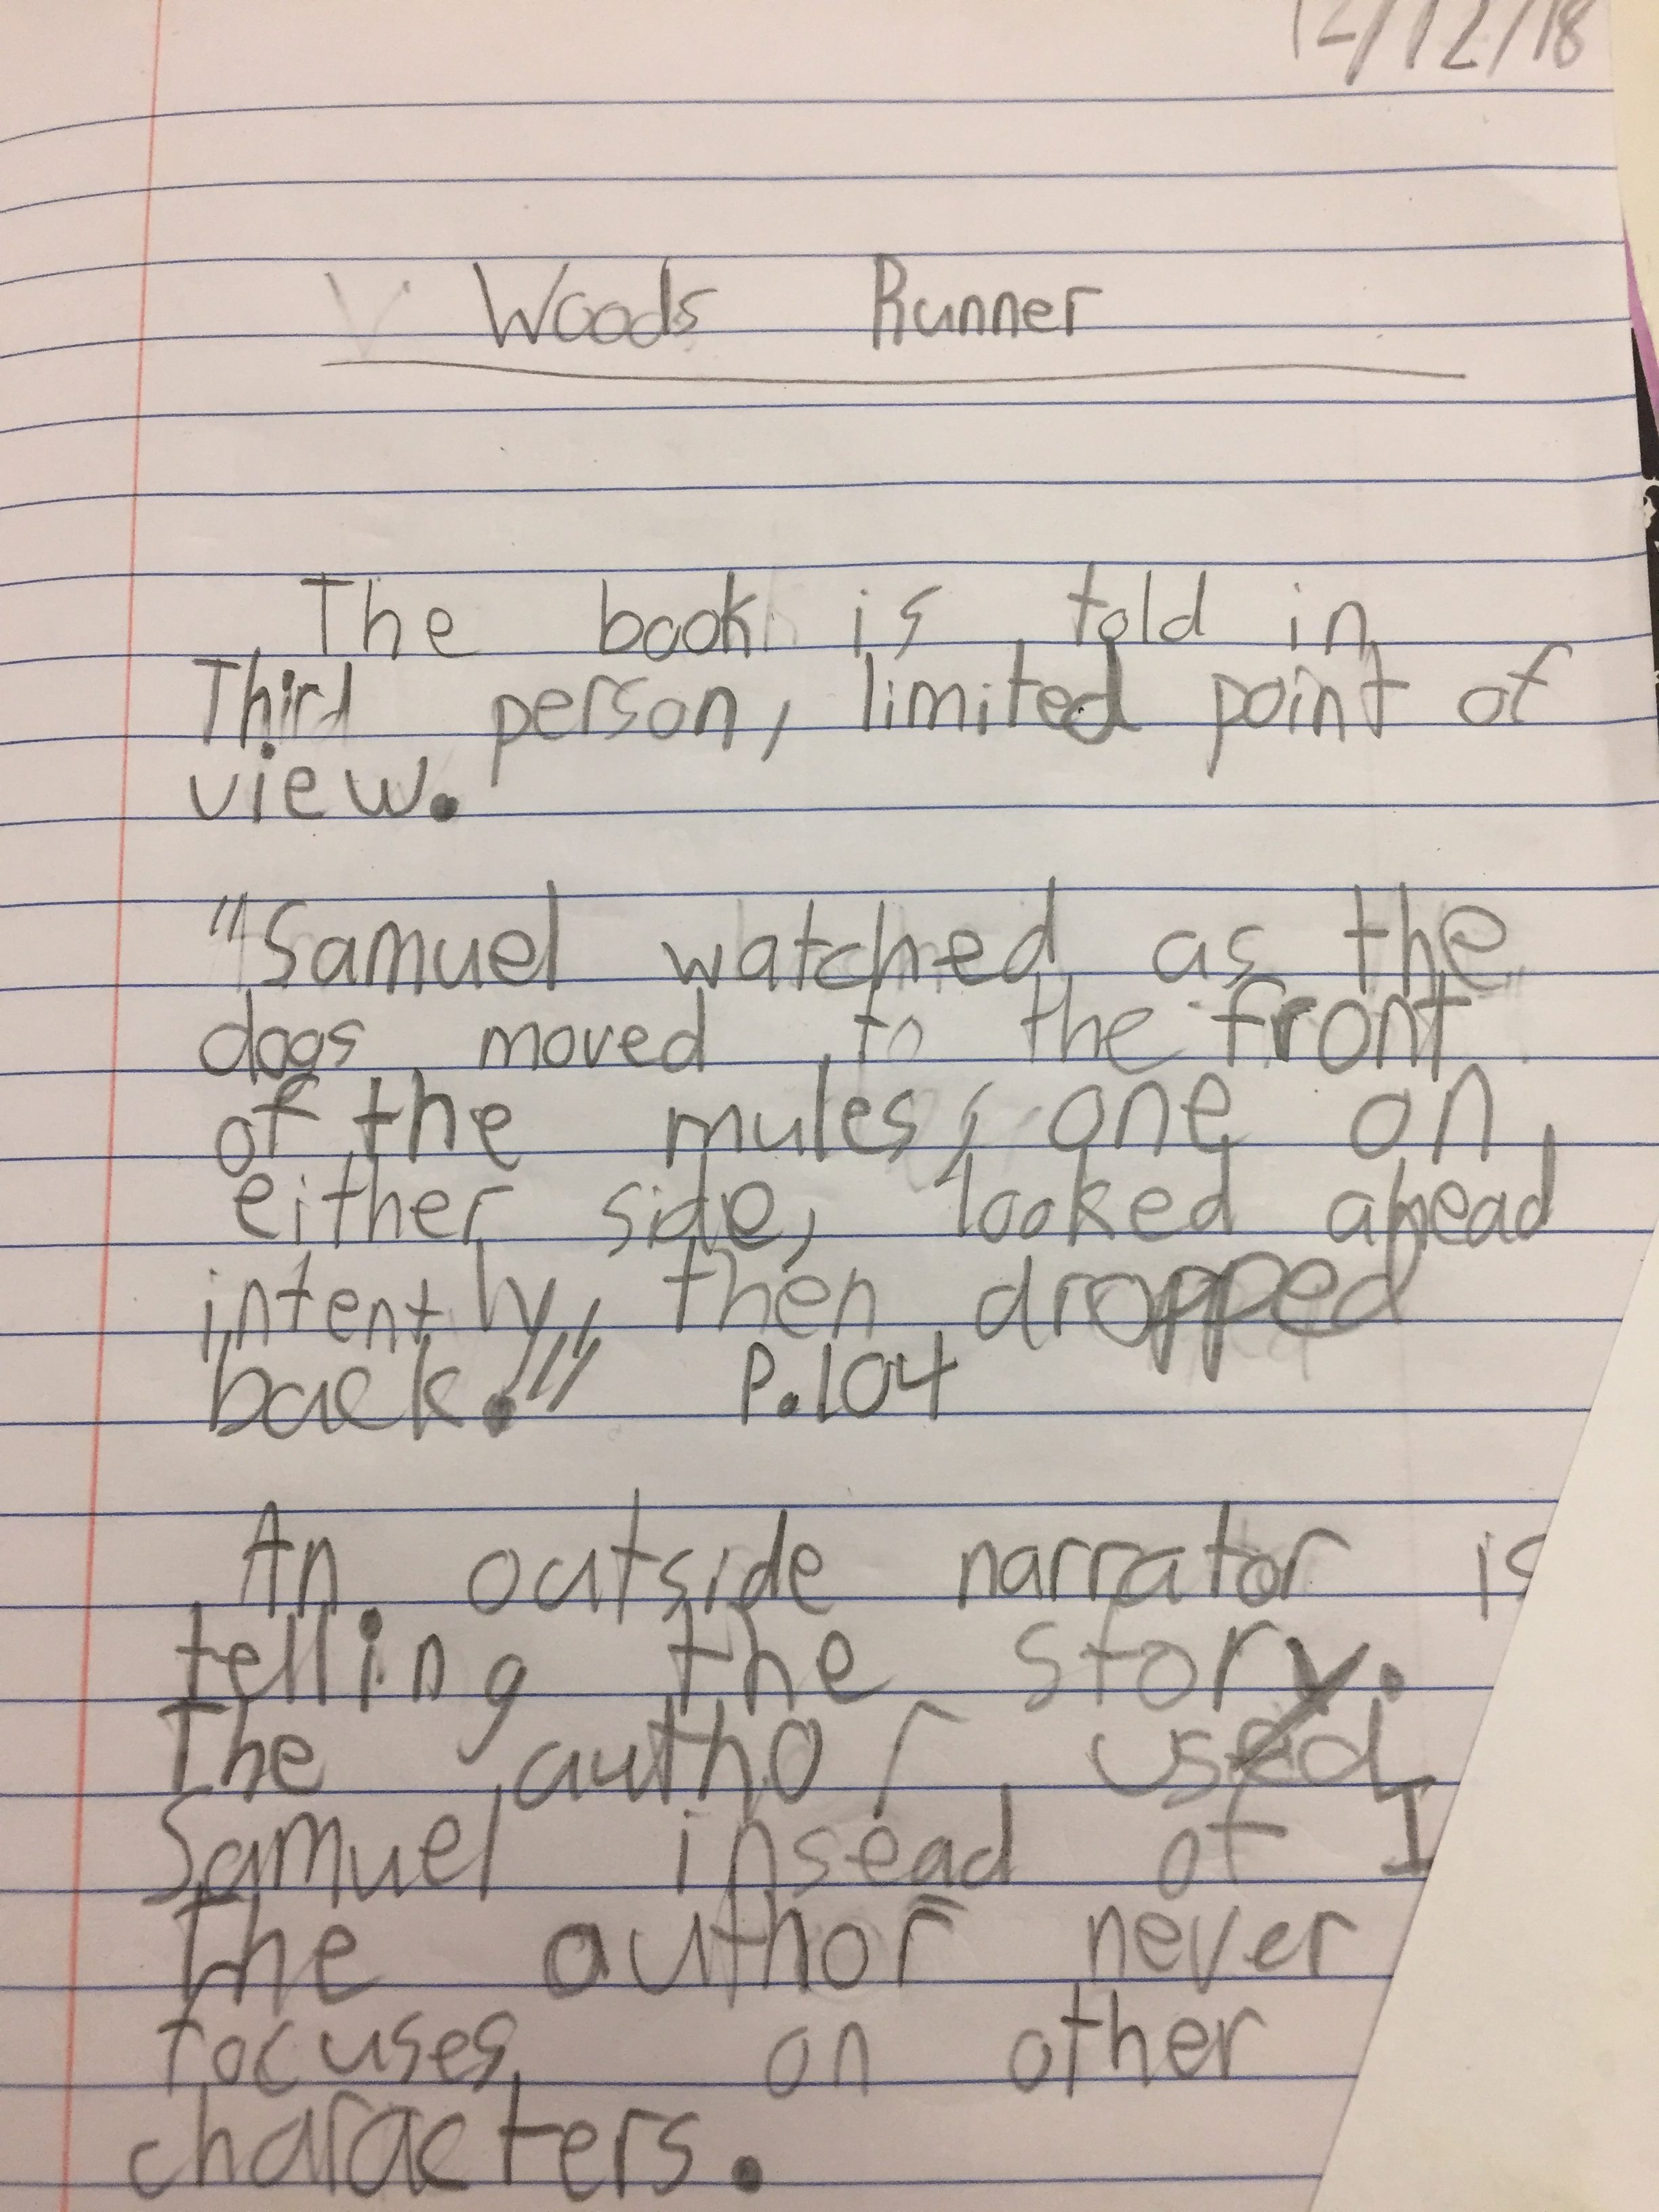 12/12/18
Woods Runner
The book is told in
Third person, limited point of
view.
"Samuel watched as the
dogs moved to the front
of the mules, one on
either side, looked ahead
intently, then dropped
back." P.104
An outside narrator is
telling the story.
The author used
Samuel insead of I
The author never
focuses on other
characters.